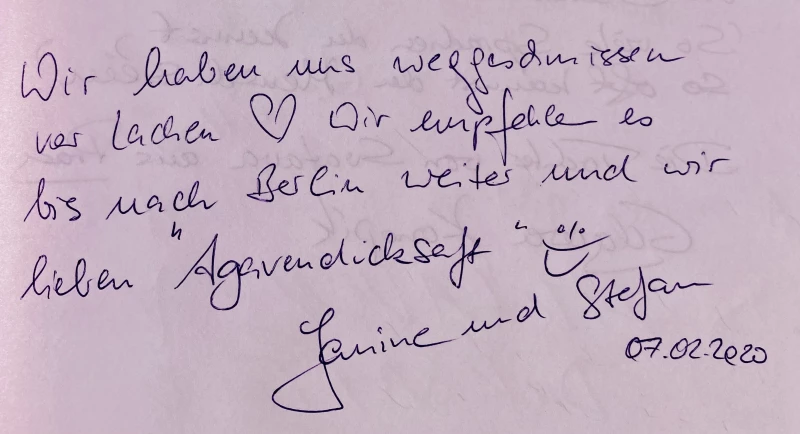 Wir haben uns weggeschmissen
vor Lachen ♡ Wir empfehlen es
bis nach Berlin weiter und wir
lieben "Agavendicksaft"
Janine und Stefan
07.02.2020